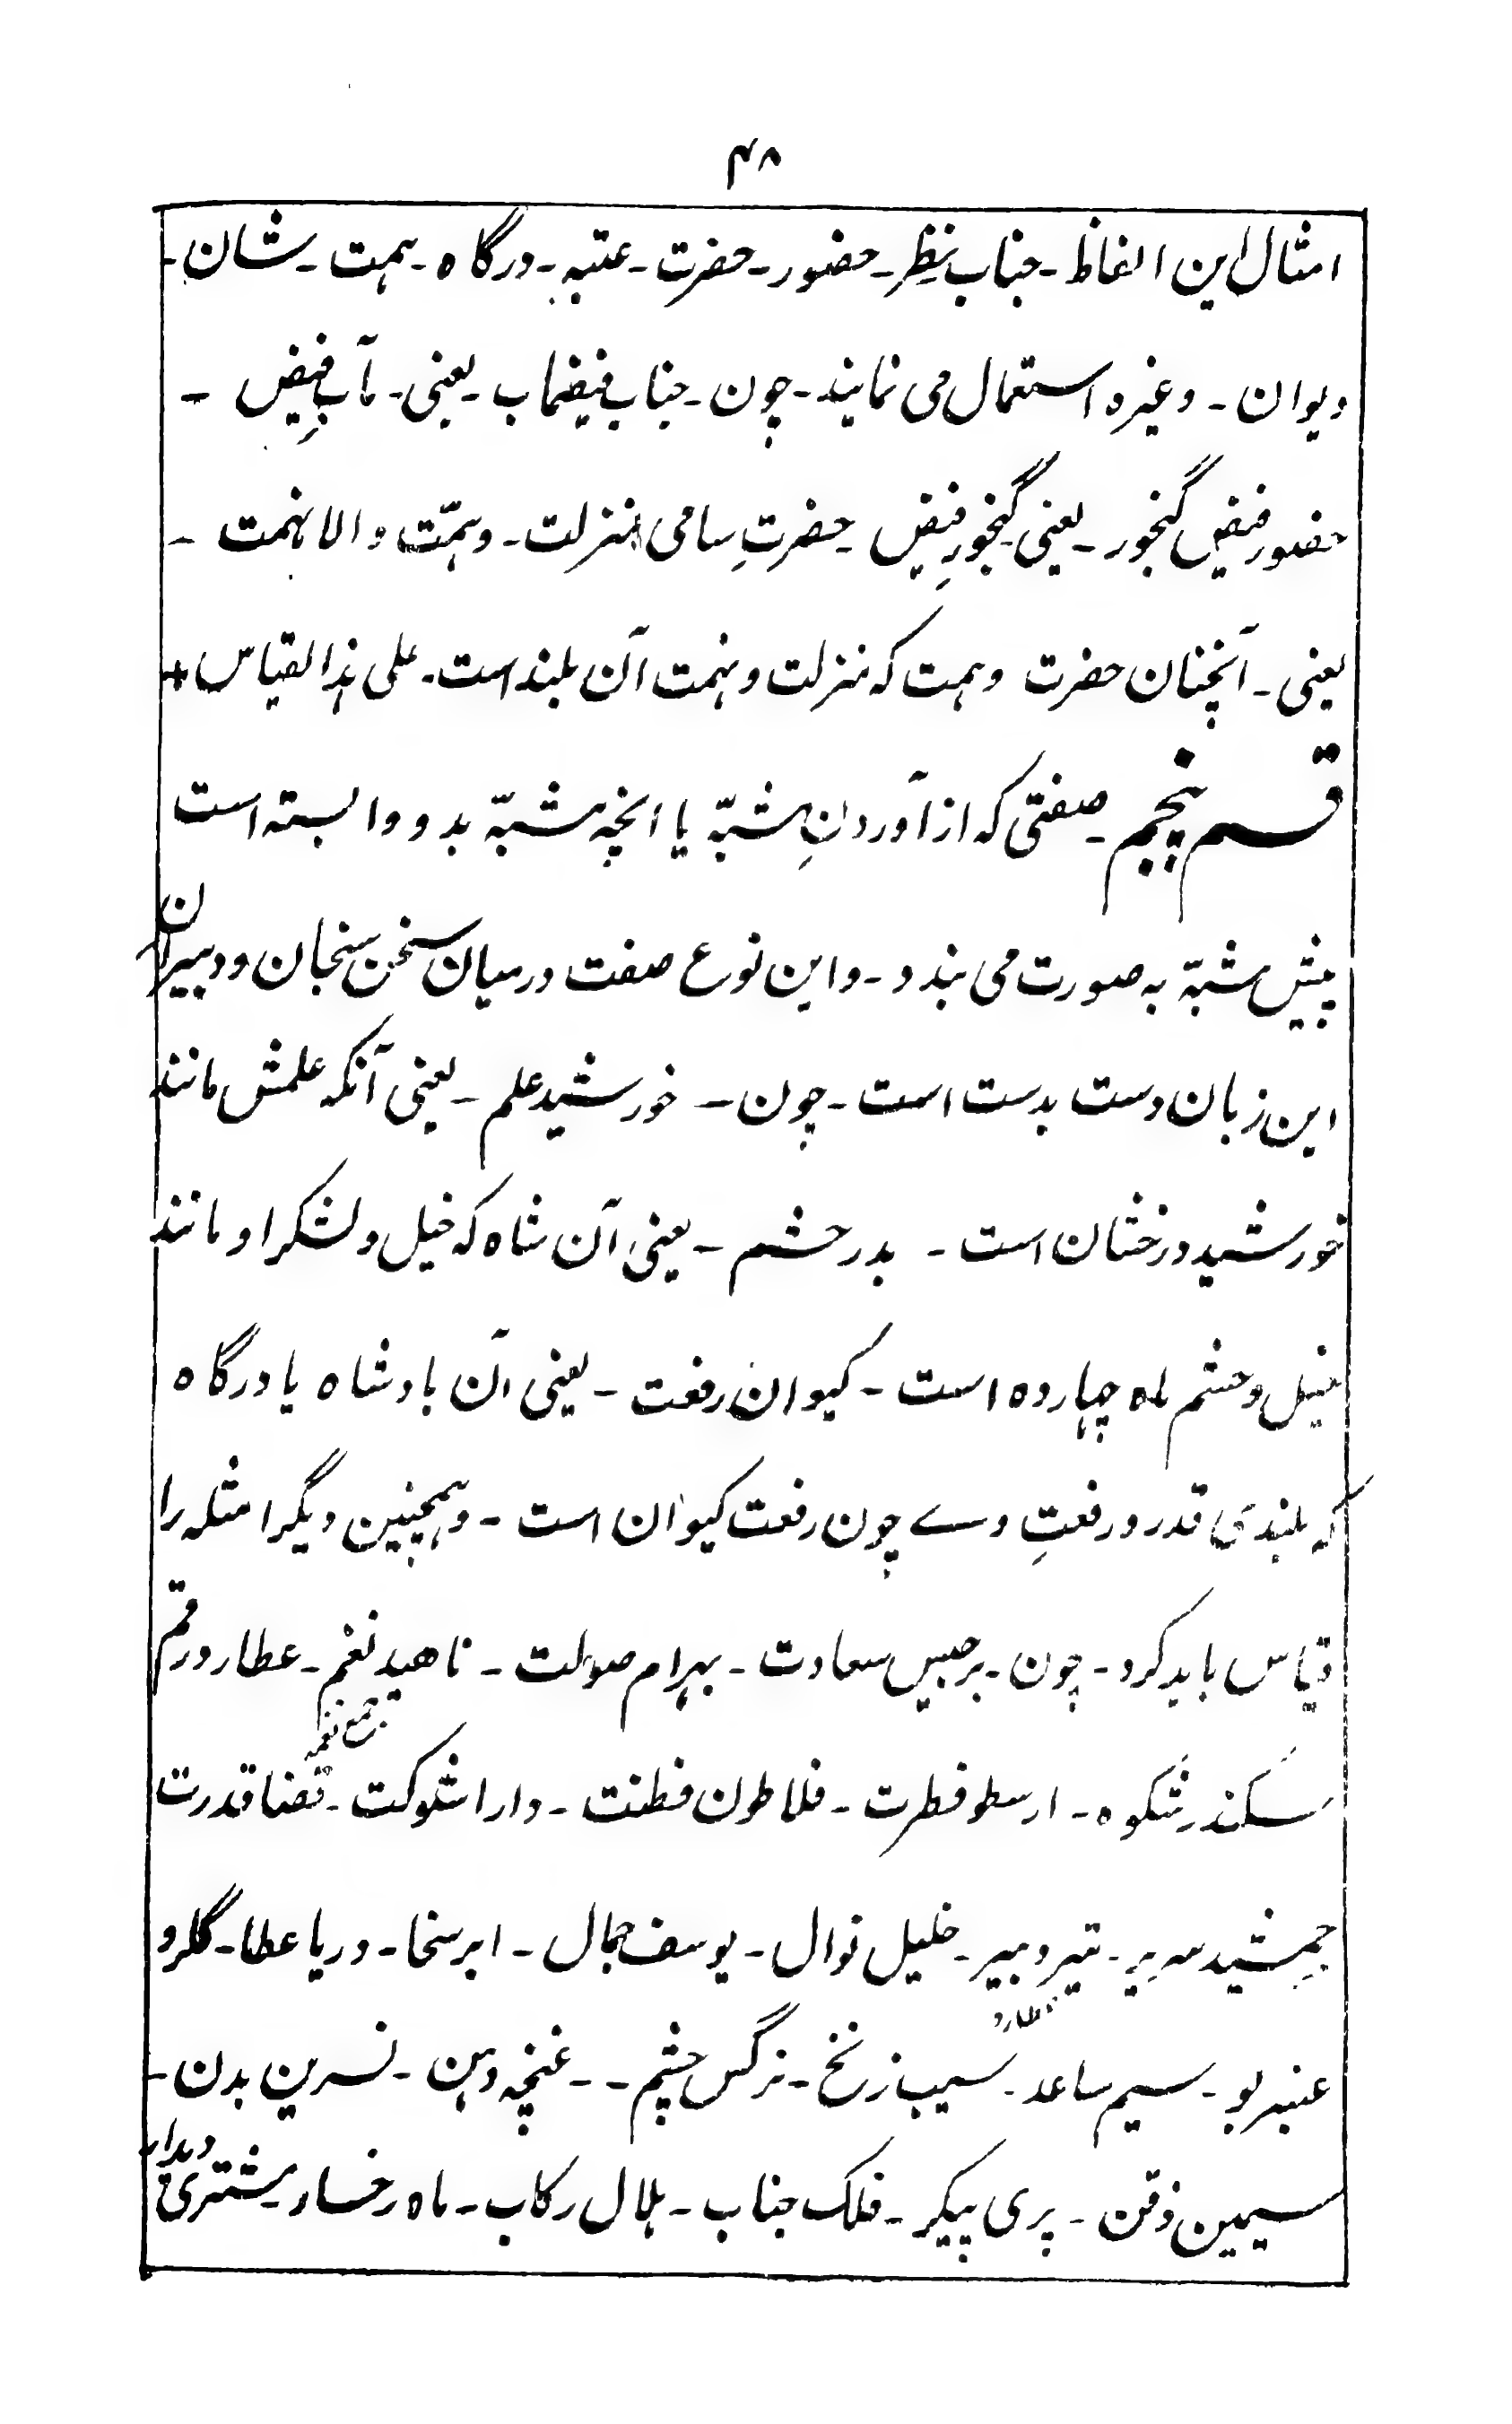 ۴۸
امثال این الفاظ ـ جناب ـ نظر ـ حضور ـ حضرت ـ عتبه ـ درگاه ـ همت ـ شان ـ
دیوان ـ وغیره استعمال می نمایند ـ چون ـ جناب فیضماب ـ یعنی ـ مآبِ فیض ـ
حضور فیض گنجور ـ یعنی گنجورِ فیض ـ حضرتِ سامی منزلت ـ وهمّت والا نهمت ـ
یعنی ـ آنچنان حضرت وهمت که منزلت ونهمت آن بلند است ـ علی هذا القیاس +
قسم پنجم ـ صفتی که از آوردنِ مشبّه یا انچه مشبّه بدو وابسته است
پیش مشبّه به صورت می بندد ـ واین نوع صفت درمیان سخن سنجان ودبیران
این زبان دست بدست است ـ چون ـ خورشید علم ـ یعنی آنکه علمش مانند
خورشید درخشان است ـ بدر حشم ـ یعنی آن شاه که خیل ولشکر او مانند
خیل وحشم ماه چهارده است ـ کیوان رفعت ـ یعنی آن بادشاه یا درگاه
که بلندی قدر ورفعتِ وے چون رفعت کیوان است ـ وهمچنین دیگر امثله را
قیاس باید کرد ـ چون ـ برجیس سعادت ـ بهرام صولت ـ ناهید نغم ـ عطارد رقم
جمع نغمه
سکندر شکوه ـ ارسطو فطرت ـ فلاطون فطنت ـ دارا شوکت ـ قضا قدرت
جمشید سریر ـ تیر دبیر ـ خلیل نوال ـ یوسف جمال ـ ابر سخا ـ دریا عطا ـ گلرو
عطارد
عنبر بو ـ سیم ساعد ـ سیب زنخ ـ نرگس چشم ـ ـ غنچه دهن ـ نسرین بدن ـ
سیمین ذقن ـ پری پیکر ـ فلک جناب ـ هلال رکاب ـ ماه رخسار ـ مشتری دیدار